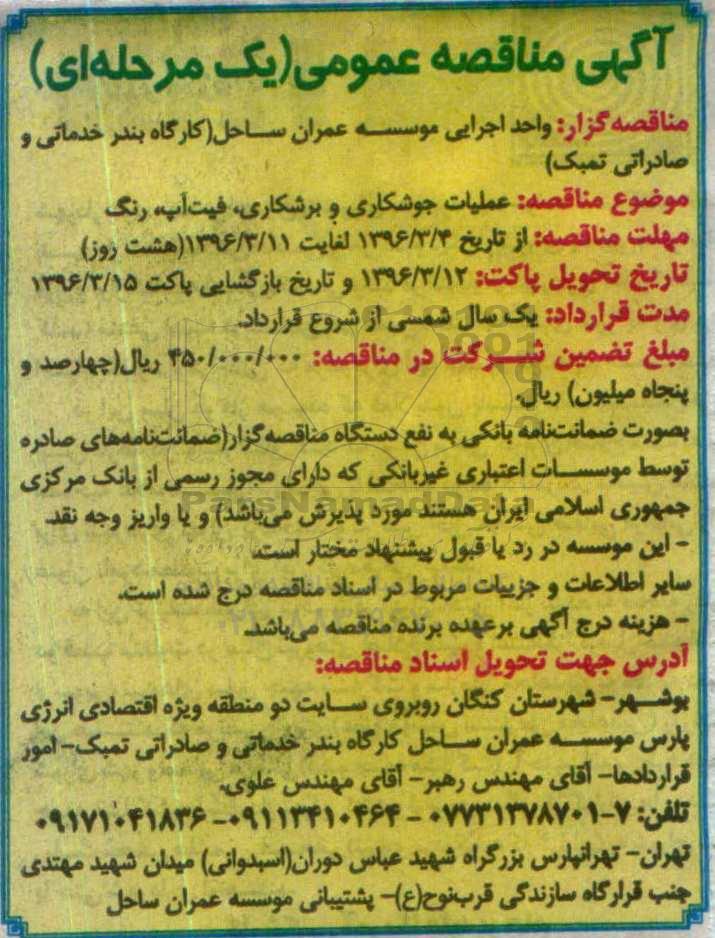 آگهی مناقصه عمومی(یک مرحله‌ای)
مناقصه‌گزار: واحد اجرایی موسسه عمران ساحل(کارگاه بندر خدماتی و
صادراتی تمبک)
موضوع مناقصه: عملیات جوشکاری و برشکاری، فیت‌آپ، رنگ
مهلت مناقصه: از تاریخ ۱۳۹۶/۳/۴ لغایت ۱۳۹۶/۳/۱۱(هشت روز)
تاریخ تحویل پاکت: ۱۳۹۶/۳/۱۲ و تاریخ بازگشایی پاکت ۱۳۹۶/۳/۱۵
مدت قرارداد: یک سال شمسی از شروع قرارداد.
مبلغ تضمین شرکت در مناقصه: ۴۵۰/۰۰۰/۰۰۰ ریال(چهارصد و
پنجاه میلیون) ریال.
بصورت ضمانت‌نامه بانکی به نفع دستگاه مناقصه‌گزار(ضمانت‌نامه‌های صادره
توسط موسسات اعتباری غیربانکی که دارای مجوز رسمی از بانک مرکزی
جمهوری اسلامی ایران هستند مورد پذیرش می‌باشد) و یا واریز وجه نقد.
ParsNamadData
- این موسسه در رد یا قبول پیشنهاد مختار است.
سایر اطلاعات و جزییات مربوط در اسناد مناقصه درج شده است.
- هزینه درج آگهی برعهده برنده مناقصه می‌باشد.
آدرس جهت تحویل اسناد مناقصه:
بوشهر- شهرستان کنگان روبروی سایت دو منطقه ویژه اقتصادی انرژی
پارس موسسه عمران ساحل کارگاه بندر خدماتی و صادراتی تمبک- امور
قراردادها- آقای مهندس رهبر- آقای مهندس علوی.
تلفن: ۷-۰۷۷۳۱۳۷۸۷۰۱ - ۰۹۱۱۳۴۱۰۴۶۴- ۰۹۱۷۱۰۴۱۸۳۶
تهران- تهرانپارس بزرگراه شهید عباس دوران(اسبدوانی) میدان شهید مهتدی
جنب قرارگاه سازندگی قرب‌نوح(ع)- پشتیبانی موسسه عمران ساحل